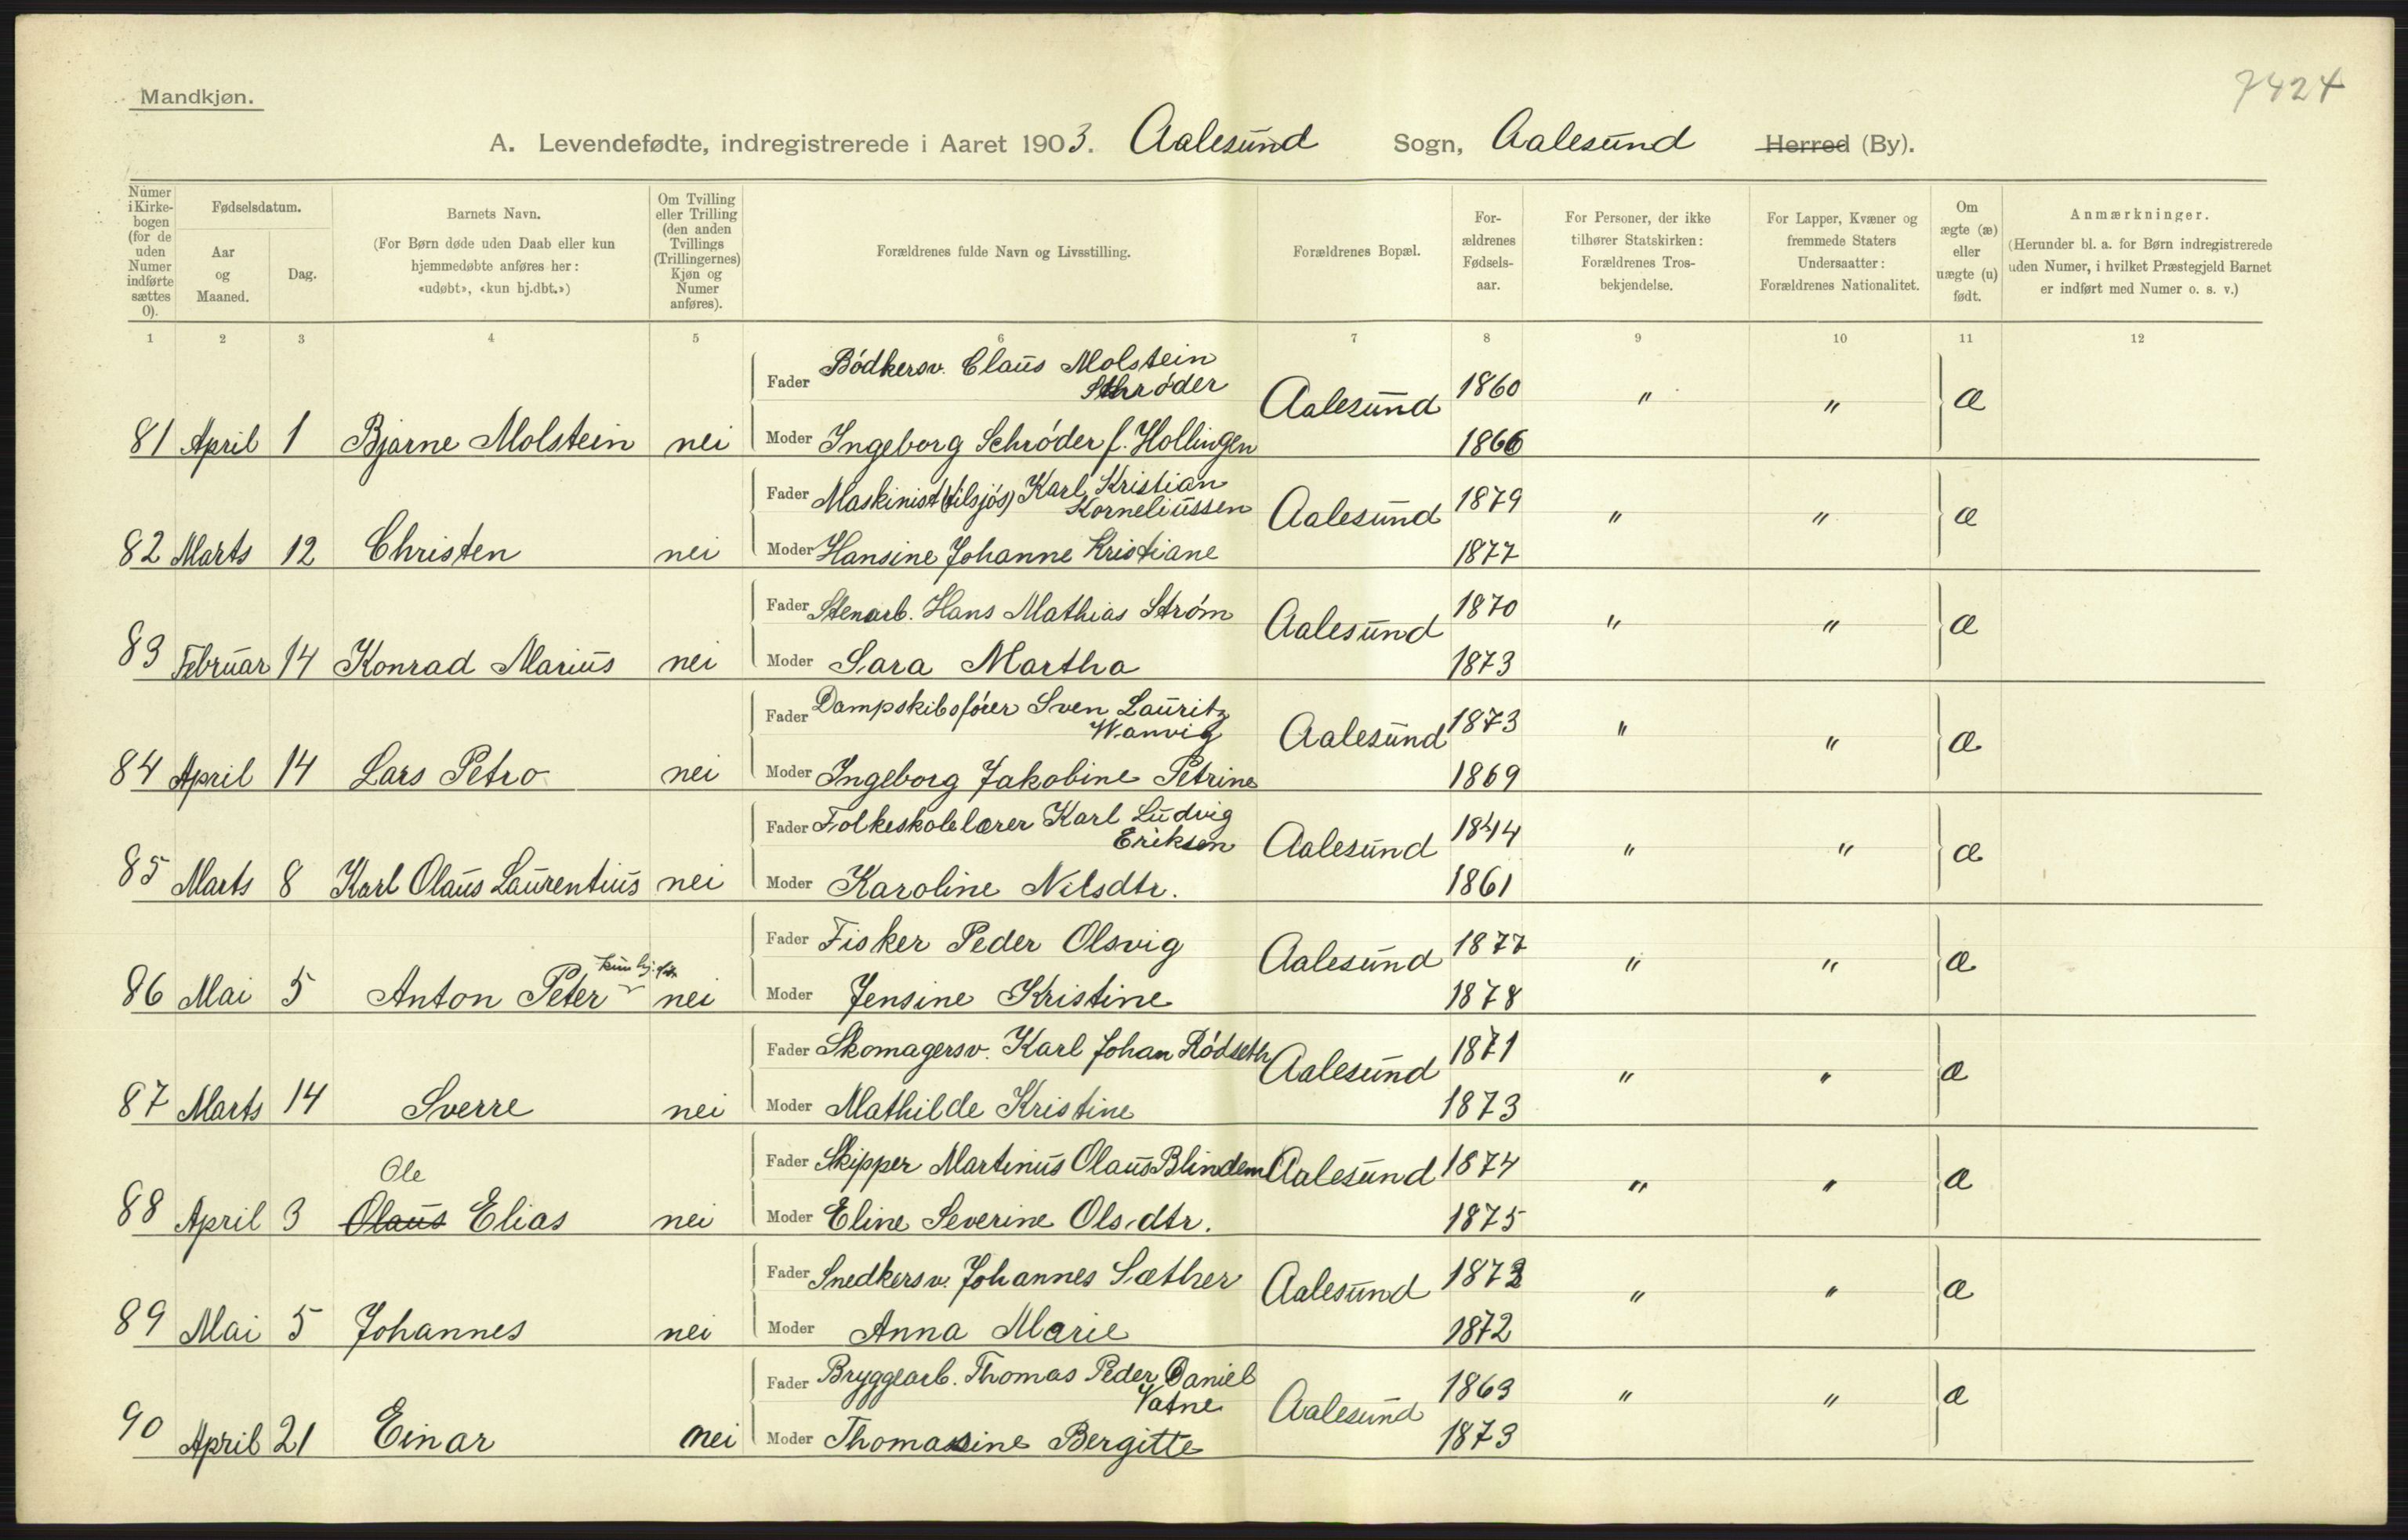 Mandkjøn.
7424
A. Levendefødte, indregistrerede i Aaret 1903. Aalesund Sogn, Aalesund Herred (By).
Numer i Kirke-bogen (for de uden Numer indførte sættes 0).
Fødselsdatum.
Aar og Maaned.
Dag.
Barnets Navn.
(For Børn døde uden Daab eller kun hjemmedøbte anføres her: «udøbt», «kun hj.dbt.»)
Om Tvilling eller Trilling (den anden Tvillings (Trillingernes) Kjøn og Numer anføres).
Forældrenes fulde Navn og Livsstilling.
Forældrenes Bopæl.
For-ældrenes Fødsels-aar.
For Personer, der ikke tilhører Statskirken: Forældrenes Tros-bekjendelse.
For Lapper, Kvæner og fremmede Staters Undersaatter: Forældrenes Nationalitet.
Om ægte (æ) eller uægte (u) født.
Anmærkninger.
(Herunder bl. a. for Børn indregistrerede uden Numer, i hvilket Præstegjeld Barnet er indført med Numer o. s. v.)
1 2 3 4 5 6 7 8 9 10 11 12
Fader Bødkersv. Claus Molstein
Schrøder Aalesund 1860 " " æ
81 April 1 Bjarne Molstein nei Moder Ingeborg Schrøder f. Hollingen 1866
Fader Maskinist (tilsjøs) Karl Kristian
Korneliussen Aalesund 1879 " " æ
82 Marts 12 Christen nei Moder Hansine Johanne Kristiane 1877
Fader Stenarb. Hans Mathias Strøm Aalesund 1870 " " æ
83 Februar 14 Konrad Marius nei Moder Sara Martha 1873
Fader Dampskibsfører Sven Lauritz
Wanvig Aalesund 1873 " " æ
84 April 14 Lars Petro nei Moder Ingeborg Jakobine Petrine 1869
Fader Folkeskolelærer Karl Ludvig
Eriksen Aalesund 1844 " " æ
85 Marts 8 Karl Olaus Laurentius nei Moder Karoline Nilsdtr. 1861
Fader Fisker Peder Olsvig Aalesund 1877 " " æ
kun hj.
86 Mai 5 Anton Peter nei Moder Jensine Kristine 1878
Fader Skomagersv. Karl Johan Rødseth Aalesund 1871 " " æ
87 Marts 14 Sverre nei Moder Mathilde Kristine 1873
Fader Skipper Martinus Olaus Blindem Aalesund 1874 " " æ
Ole
88 April 3 Olaus Elias nei Moder Eline Severine Olsdtr. 1875
Fader Snedkersv. Johannes Sæther Aalesund 1873 " " æ
89 Mai 5 Johannes nei Moder Anna Marie 1872
Fader Bryggearb. Thomas Peder Daniel
Vatne Aalesund 1863 " " æ
90 April 21 Einar nei Moder Thomasine Bergitte 1873